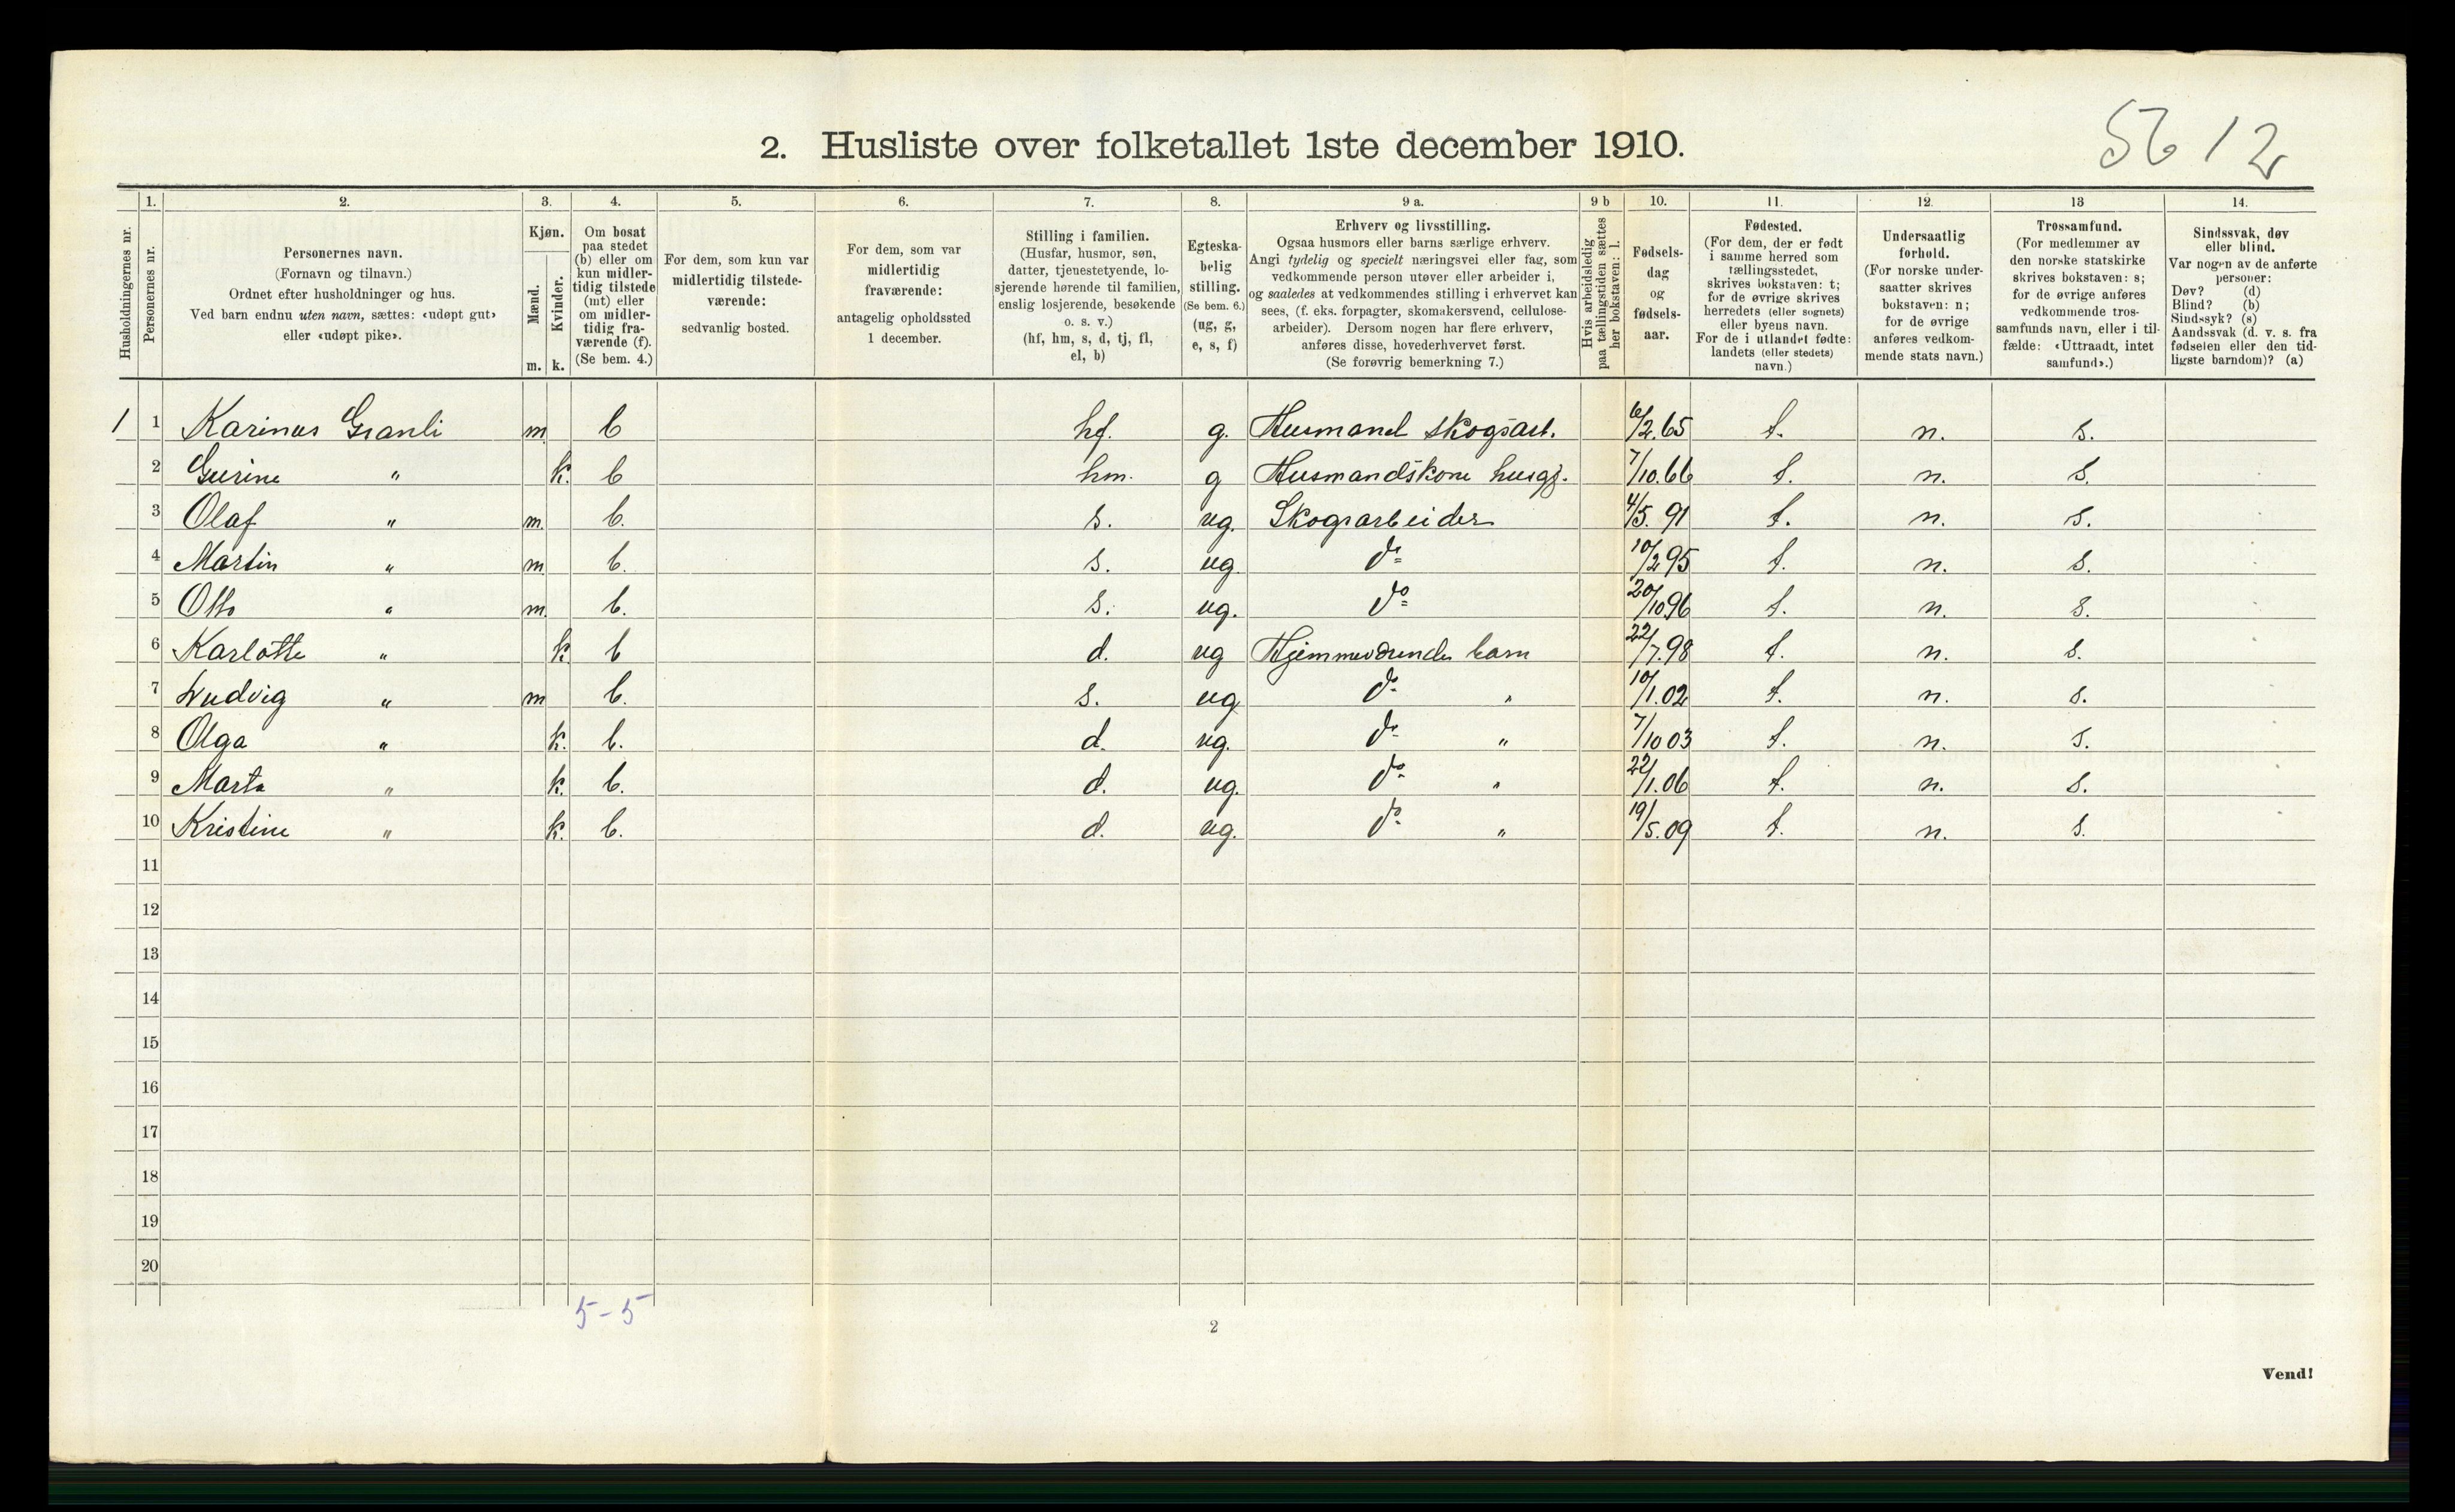 56 12
2. Husliste over folketallet 1ste december 1910.
1. 2. 3. 4. 5. 6. 7. 8. 9 a. 9 b 10. 11. 12. 13 14.
Husholdningernes nr.
Personernes nr.
Personernes navn.
(Fornavn og tilnavn.)
Ordnet efter husholdninger og hus.
Ved barn endnu uten navn, sættes: «udøpt gut»
eller «udøpt pike».
Kjøn.
Mænd.
Kvinder.
m. k.
Om bosat
paa stedet
(b) eller om
kun midler-
tidig tilstede
(mt) eller
om midler-
tidig fra-
værende (f).
(Se bem. 4.)
For dem, som kun var
midlertidig tilstede-
værende:
sedvanlig bosted.
For dem, som var
midlertidig
fraværende:
antagelig opholdssted
1 december.
Stilling i familien.
(Husfar, husmor, søn,
datter, tjenestetyende, lo-
sjerende hørende til familien,
enslig losjerende, besøkende
o. s. v.)
(hf, hm, s, d, tj, fl,
el, b)
Egteska-
belig
stilling.
(Se bem. 6.)
(ug, g,
e, s, f)
Erhverv og livsstilling.
Ogsaa husmors eller barns særlige erhverv.
Angi tydelig og specielt næringsvei eller fag, som
vedkommende person utøver eller arbeider i,
og saaledes at vedkommendes stilling i erhvervet kan
sees, (f. eks. forpagter, skomakersvend, cellulose-
arbeider). Dersom nogen har flere erhverv,
anføres disse, hovederhvervet først.
(Se forøvrig bemerkning 7.)
Hvis arbeidsledig
paa tællingstiden sættes
her bokstaven: l.
Fødsels-
dag
og
fødsels-
aar.
Fødested.
(For dem, der er født
i samme herred som
tællingsstedet,
skrives bokstaven: t;
for de øvrige skrives
herredets (eller sognets)
eller byens navn.
For de i utlandet fødte:
landets (eller stedets)
navn.)
Undersaatlig
forhold.
(For norske under-
saatter skrives
bokstaven: n;
for de øvrige
anføres vedkom-
mende stats navn.)
Trossamfund.
(For medlemmer av
den norske statskirke
skrives bokstaven: s;
for de øvrige anføres
vedkommende tros-
samfunds navn, eller i til-
fælde: «Uttraadt, intet
samfund».)
Sindssvak, døv
eller blind.
Var nogen av de anførte
personer:
Døv? (d)
Blind? (b)
Sindssyk? (s)
Aandssvak (d. v. s. fra
fødselen eller den tid-
ligste barndom)? (a)
1 1 Karinus Granli m. b hf. g. Husmand skogsarb. 6/2.65 t. n. s.
2 Gurine " k. b hm. g Husmandskone husgj. 7/10.66 t. n. s.
3 Olaf " m. b. s. ug. Skogsarbeider 4/5. 91 t. n. s.
4 Martin " m. b. s. ug. do 10/2 95 t. n. s.
5 Otto " m. b. s. ug. do 20/10 96 t. n. s.
6 Karlotte " k. b d. ug Hjemmeværende barn 22/7.98 t. n. s.
7 Ludvig " m b. s. ug do " 10/1.02 t. n. s.
8 Olga " k. b. d. ug. do " 7/10 03 t. n. s.
9 Marta " k. b. d. ug. do " 22/1.06 t. n. s.
10 Kristine " k. b. d. ug. do " 19/5.09 t. n. s.
11
12
13
14
15
16
17
18
19
20
5-5
2
Vend!